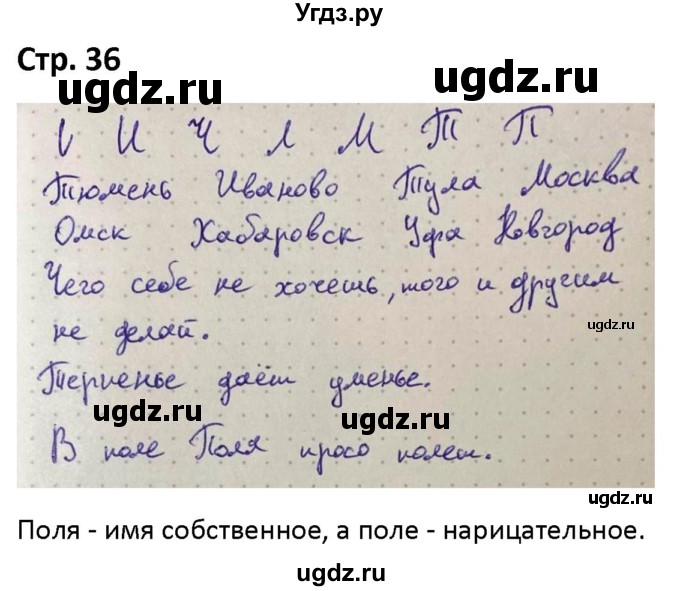 Угдз.ру
Стр. 36
ugdz.ru
ugdz.ru
И Ч Л М Т П
Тюмень Иваново Тула Москва
Омск Хабаровск Уфа Новгород
Чего себе не хочешь, того и другим
ugdz.ru
не делай.
Терпенье даёт уменье.
ugdz.ru
ugdz.ru
В поле Поля просо полет.
ugdz.ru
Поля - имя собственное, а поле - нарицательное.
ugdz.ru